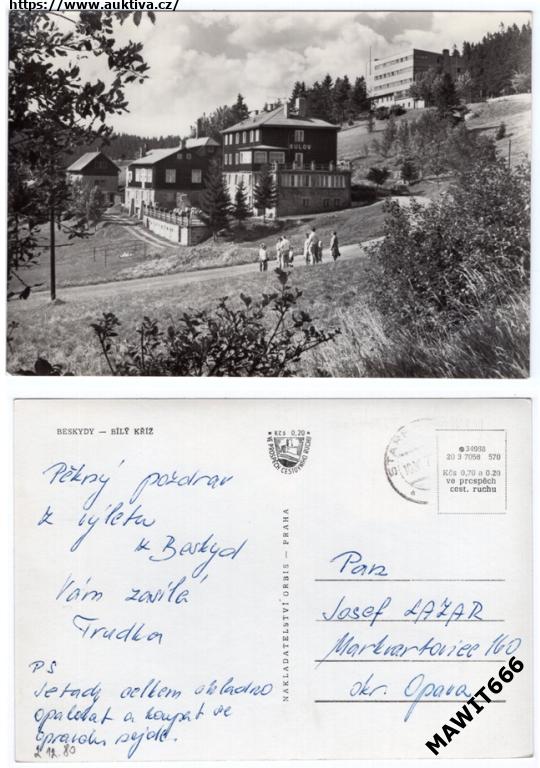 https://www.auktiva.cz/
SULOV
BESKYDY — BÍLÝ KŘÍŽ
Kčs 0,20
VE PROSPĚCH CESTOVNÍHO RUCHU
STARÉ
34998
20 3 7058 570
Kčs 0,70 a 0.20
ve prospěch
cest. ruchu
Pěkný pozdrav
z výletu
z Beskyd
Vám zasílá
Trudka
PS
Je tady celkem chladno
opalovat a koupat se
opravdu nejde.
2 12. 80
NAKLADATELSTVÍ ORBIS — PRAHA
Pan
Josef LAZAR
Markvartovice 160
okr. Opava
MAWIT666